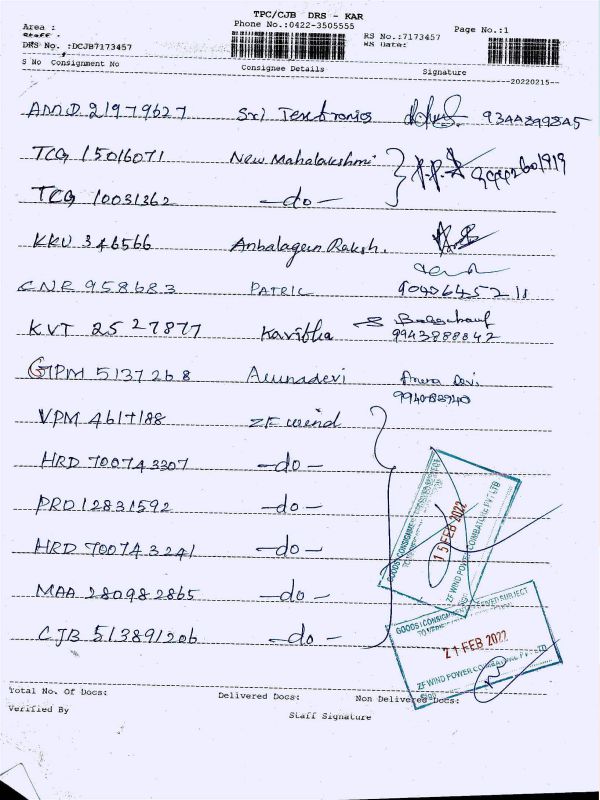 TPC/CJB DRS - KAR
Area :
Phone No.:0422-3505555
Page No.:1
Staff :
RS No.:7173457
DRS No. :DCJB7173457
RS Date:
S No Consignment No Consignee Details Signature
20220215
AMD 21979627 Sri Textronics 9344899845
TCG 15016071 New Mahalakshmi
TCG 10031362 -do-
KKU 346566 Anbalagan Raksh.
CNR 958683 PATRIC 9040645211
KVT 2527877 Kavibha 9943888842
GTPM 5137268 Arunadevi Aruna Devi
VPM 4617188 ZF wind
HRD 700743307 -do-
PRD 12831592 -do-
HRD 700743241 -do-
MAA 280982865 -do-
CJB 513891206 -do-
15 FEB 2022
ZF WIND POWER COIMBATORE PVT LTD
21 FEB 2022
ZF WIND POWER COIMBATORE PVT LTD
Total No. Of Docs: Delivered Docs: Non Delivered Docs:
Verified By
Staff Signature